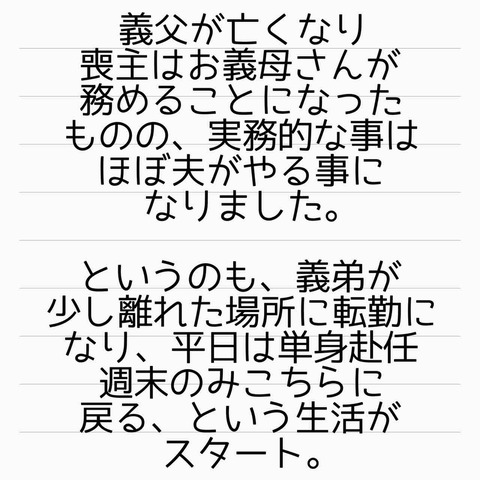 義父が亡くなり
喪主はお義母さんが
務めることになった
ものの、実務的な事は
ほぼ夫がやる事に
なりました。
というのも、義弟が
少し離れた場所に転勤に
なり、平日は単身赴任
週末のみこちらに
戻る、という生活が
スタート。